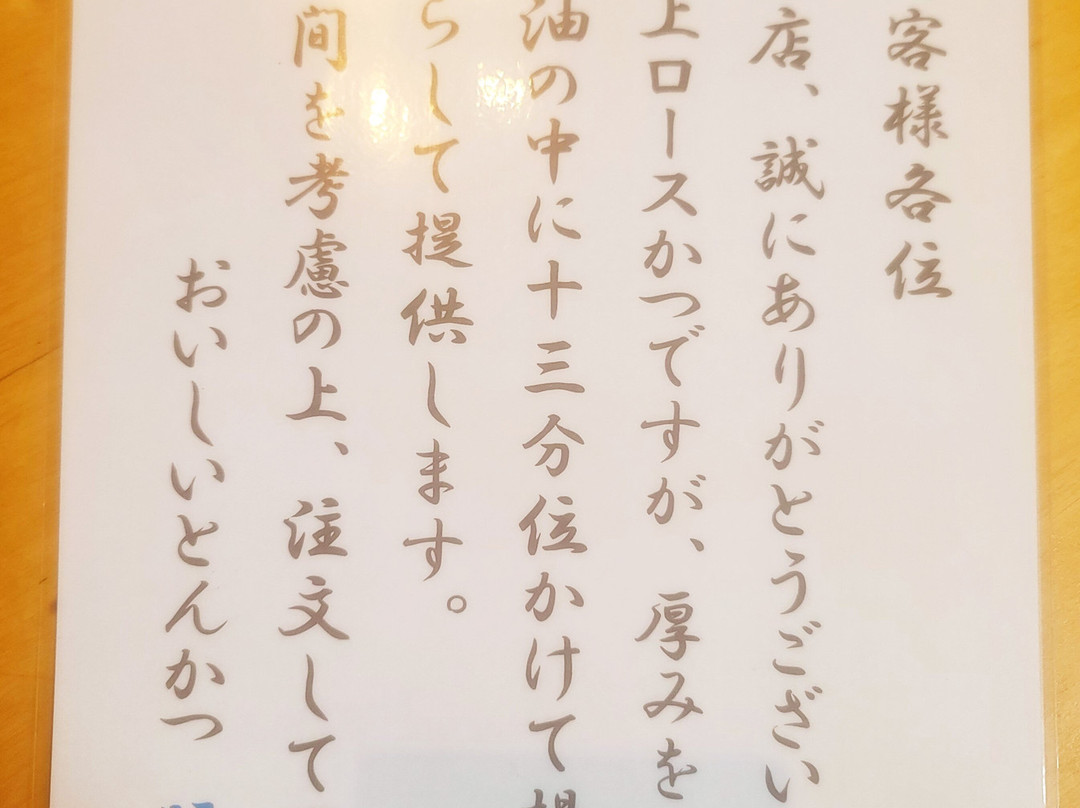 客様各位
店、誠にありがとうござい
上ロースかつですが、厚みを
油の中に十三分位かけて揚
らして提供します。
間を考慮の上、注文して
おいしいとんかつ